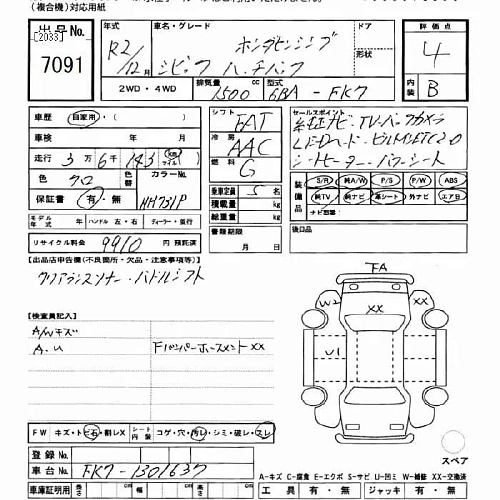 (複合機)対応用紙
出品No. [2033] 7091
年式 R2/12月
車名・グレード ホンダセンシング シビック ハッチバック
ドア 形状
評価点 4
内装 B
2WD・4WD
排気量 1500 cc
型式 6BA-FK7
車歴 自家用・( )
車検 年 月
走行 3万6千143
色 クロ 色替 カラーNo.
保証書 有・無 NH731P
モデル年式 ハンドル 左・右 ディーラー・並行
リサイクル料金 9910 円 預託済
シフト FAT
冷房 AAC
燃料 G
乗車定員 5 名
積載量 kg
総重量 kg
書類期限 月 日
セールスポイント
純正ナビ・TV・バックカメラ
LEDヘッド・ビルトインETC2.0
シートヒーター・パワーシート
装備品 S/R 純A/W P/S P/W ABS
純TV 純ナビ 革シート 外ナビ エアB
ナビ型番
後口品
【出品店申告欄(不良箇所・欠品・注意事項等)】
クリアランスソナー・パドルシフト
【検査員記入】
A/Wキズ
A.U
Fバンパーホースメント××
FA
W2
XX
U1
XX
FW キズ・トビ石・割レX シート内装 コゲ・穴・汚レ・シミ・破レ・スレ
登録No.
車台No. FK7-1301637
スペア
A-キズ C-腐食 E-エクボ S-サビ U-凹ミ W-補修 XX-交換済
車庫証明用 長さ cm 幅 cm 高さ cm
工具 有・無 ジャッキ 有・無